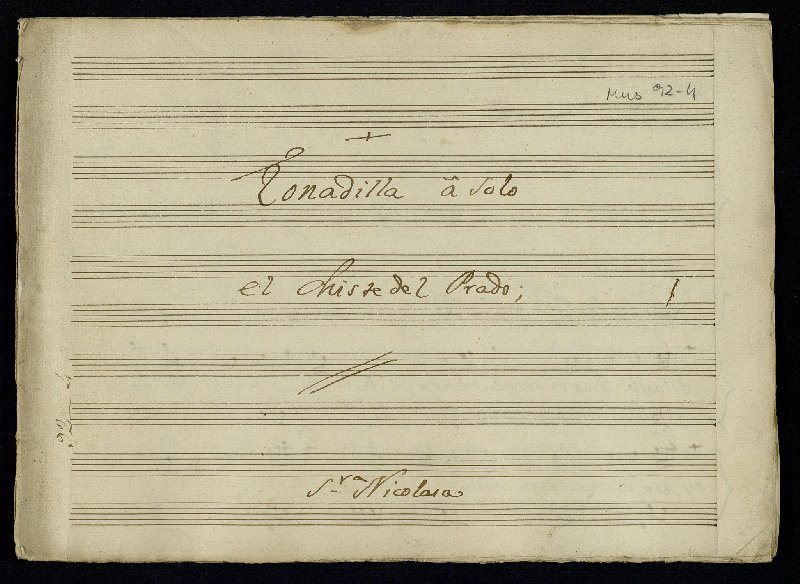 Mus 92-4
+
Tonadilla â Solo
el Chiste del Prado;
Sra Nicolasa